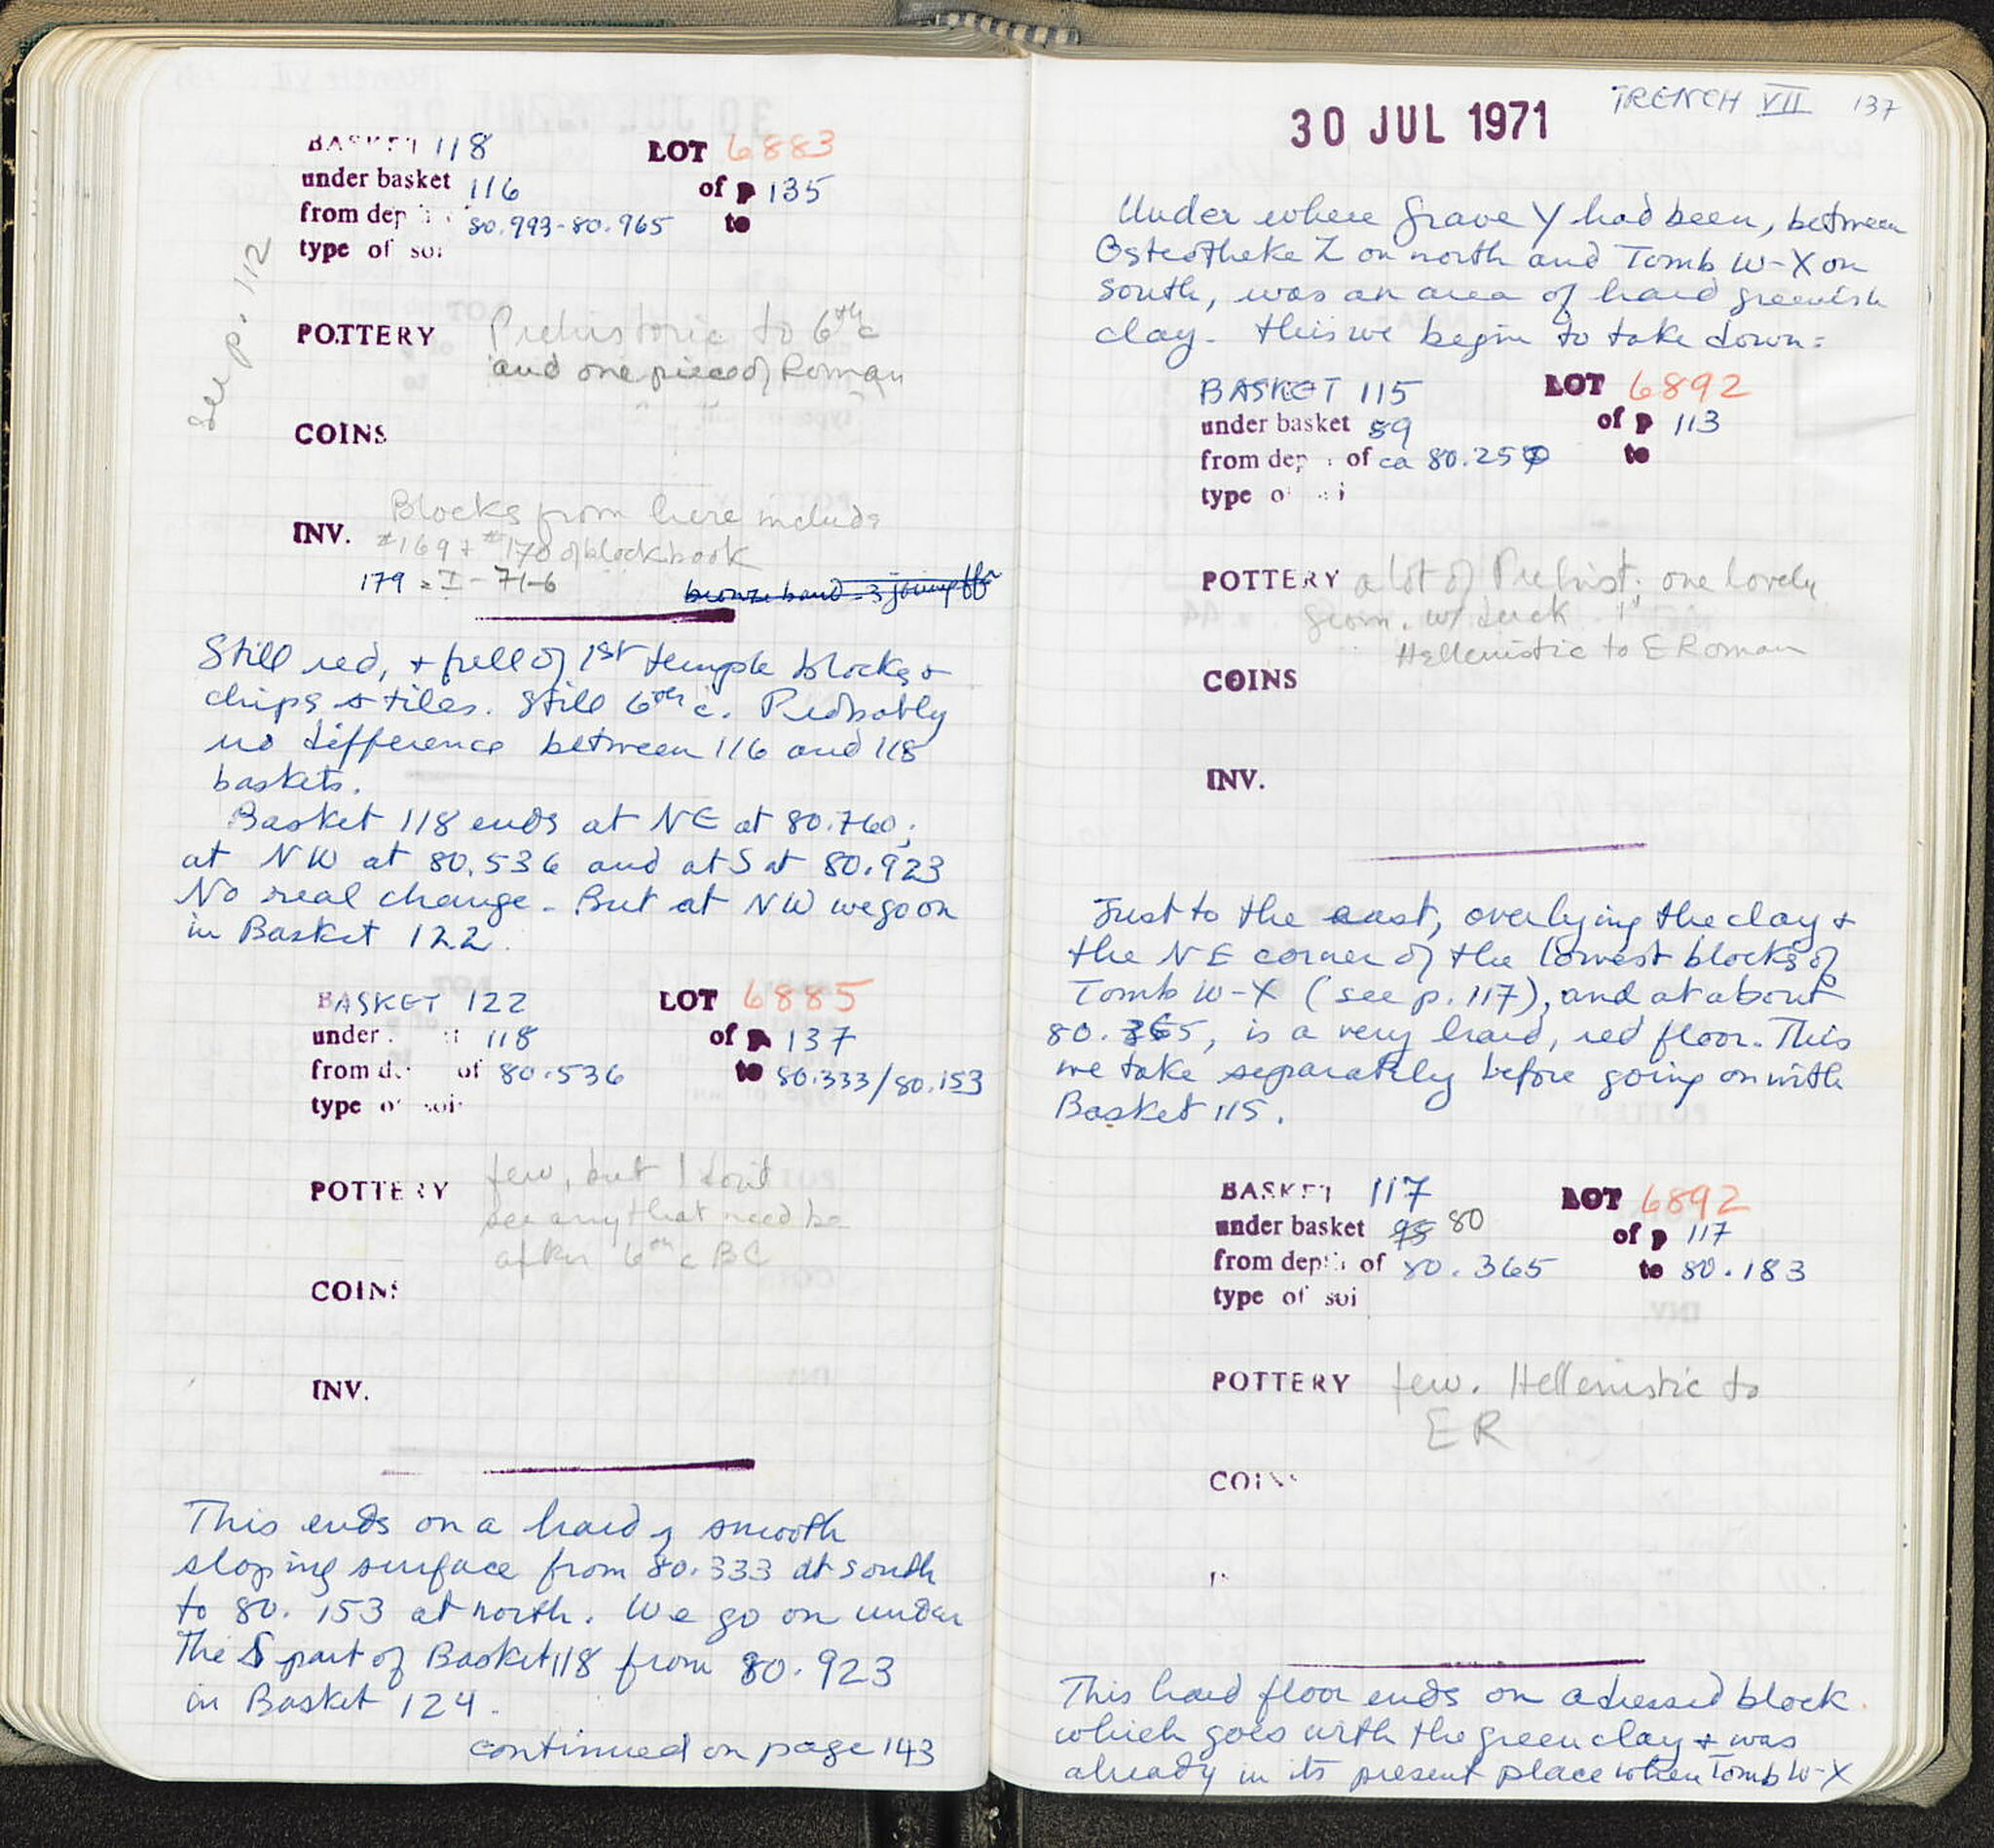 BASKET 118 LOT 6883
under basket 116 of p 135
from dep 80.993-80.965 to
type of soi
See p. 112
POTTERY Prehistoric to 6th c
and one piece of Roman
COINS
Blocks from here include
INV. #169 + #170 of blockbook
179 = I-71-6 bronze band - 3 joining ffr
Still red, + full of 1st temple blocks +
chips + tiles. Still 6th c. Probably
no difference between 116 and 118
baskets.
Basket 118 ends at NE at 80.760;
at NW at 80.536 and at S at 80.923
No real change - But at NW we go on
in Basket 122.
BASKET 122 LOT 6885
under 118 of p 137
from d of 80.536 to 80.333/80.153
type of soi
POTTERY few, but I don't
see any that need be
after 6th c BC
COINS
INV.
This ends on a hard, smooth
sloping surface from 80.333 at south
to 80.153 at north. We go on under
the S part of Basket 118 from 80.923
in Basket 124.
continued on page 143
TRENCH VII 137
30 JUL 1971
Under where Grave Y had been, between
Osteotheke Z on north and Tomb W-X on
south, was an area of hard greenish
clay. This we begin to take down:
BASKET 115 LOT 6892
under basket 89 of p 113
from dep of ca 80.250 to
type o i
POTTERY a lot of Prehist; one lovely
Hellenistic to E Roman
COINS
INV.
Just to the east, overlying the clay +
the NE corner of the lowest blocks of
Tomb W-X (see p. 117), and at about
80.365, is a very hard, red floor. This
we take separately before going on with
Basket 115.
BASKET 117 LOT 6892
under basket 95 80 of p 117
from depth of 80.365 to 80.183
type of soi
POTTERY few. Hellenistic to
ER
COIN
This hard floor ends on a dressed block
which goes with the green clay + was
already in its present place when Tomb W-X